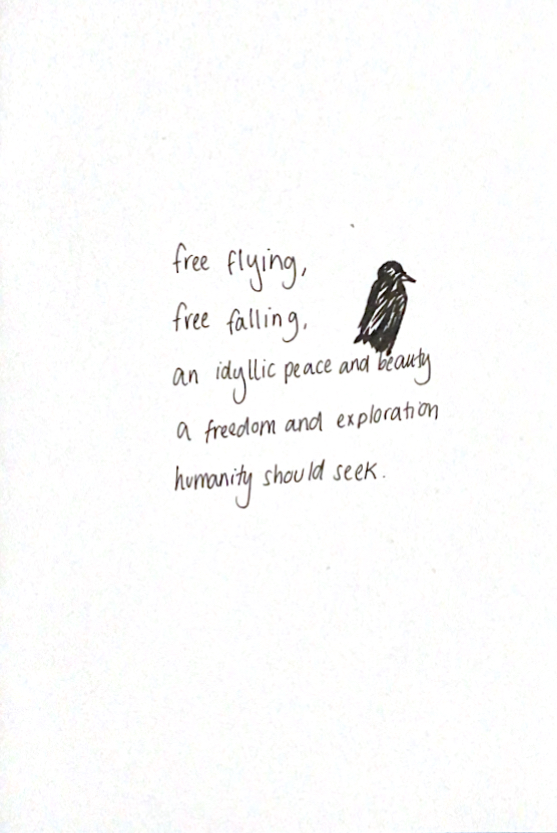 free flying,
free falling,
an idyllic peace and beauty
a freedom and exploration
humanity should seek.